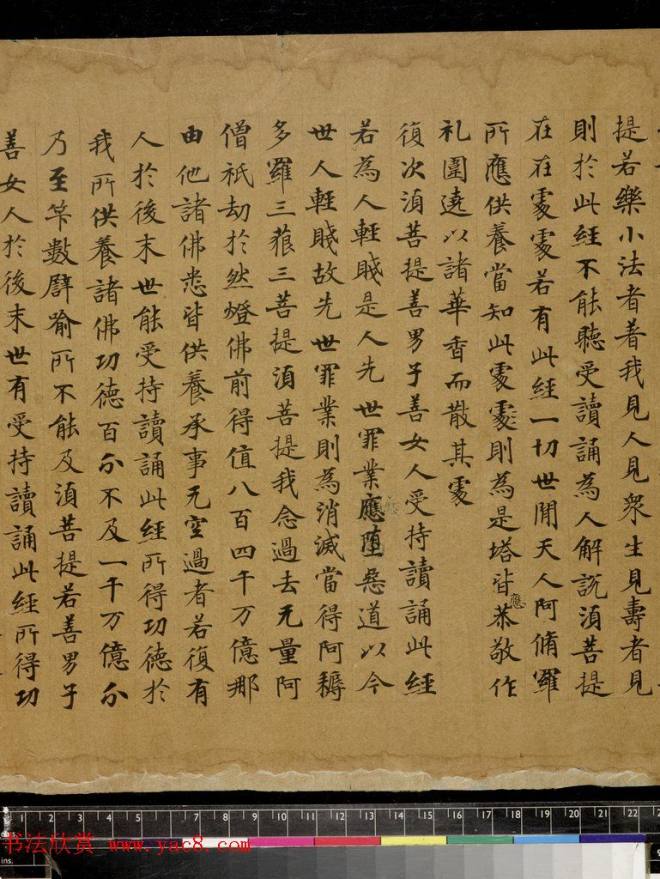 提若樂小法者着我見人見衆生見壽者見
則於此經不能聽受讀誦為人解説湏菩提
在在䖏䖏若有此經一切世閒天人阿脩羅
所應供養當知此䖏䖏則為是塔皆應恭敬作
礼圍遶以諸華香而散其䖏
復次湏菩提善男子善女人受持讀誦此經
若為人輕賤是人先世罪業應墮惡道以今
世人輕賤故先世罪業則為消滅當得阿耨
多羅三藐三菩提湏菩提我念過去无量阿
僧祇劫於然燈佛前得值八百四千万億那
由他諸佛悉皆供養承事无空過者若復有
人於後末世能受持讀誦此經所得功德於
我所供養諸佛功德百分不及一千万億分
乃至筭數譬喻所不能及湏菩提若善男子
善女人於後末世有受持讀誦此經所得功
1 2 3 4 5 6 7 8 9 10 11 12 13 14 15 16 17 18 19 20 21 22
ins.
书法欣赏 www.yac8.com